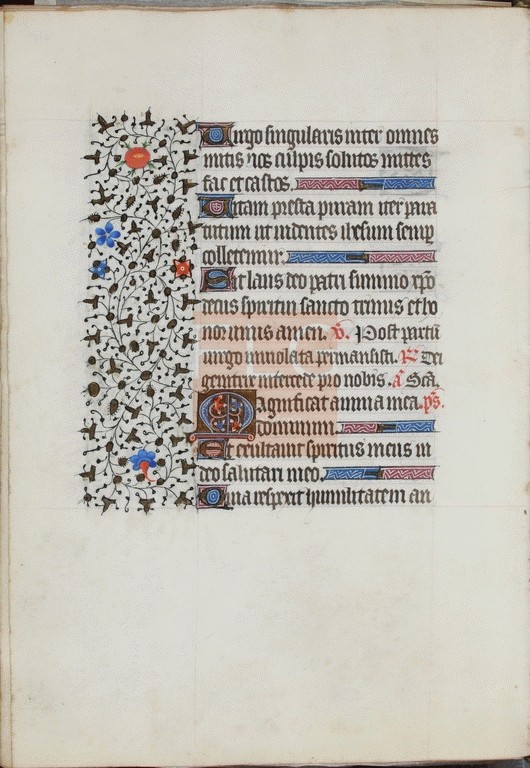 Virgo singularis inter omnes
mitis nos culpis solutos mites
fac et castos.
Vitam presta puram iter para
tutum ut videntes ihesum semp
colletemur.
Sit laus deo patri summo xpo
decus spiritui sancto trinus et ho
nor unus amen. v. Post partu
virgo inviolata permansisti. R Dei
genitrix intercede pro nobis. a Sca.
Magnificat anima mea. ps.
dominum.
Et exultavit spiritus meus in
deo salutari meo.
Quia respexit humilitatem an